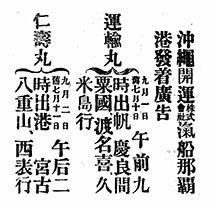 沖繩開運株式會社汽船那覇
港發着廣告
運輸丸 九月一日 舊七月十日 午前九
時出帆 慶良間
粟國 渡名喜 久
米島行
仁壽丸 九月二日 舊七月十一日 午后二
時出港 宮古
八重山、西表行